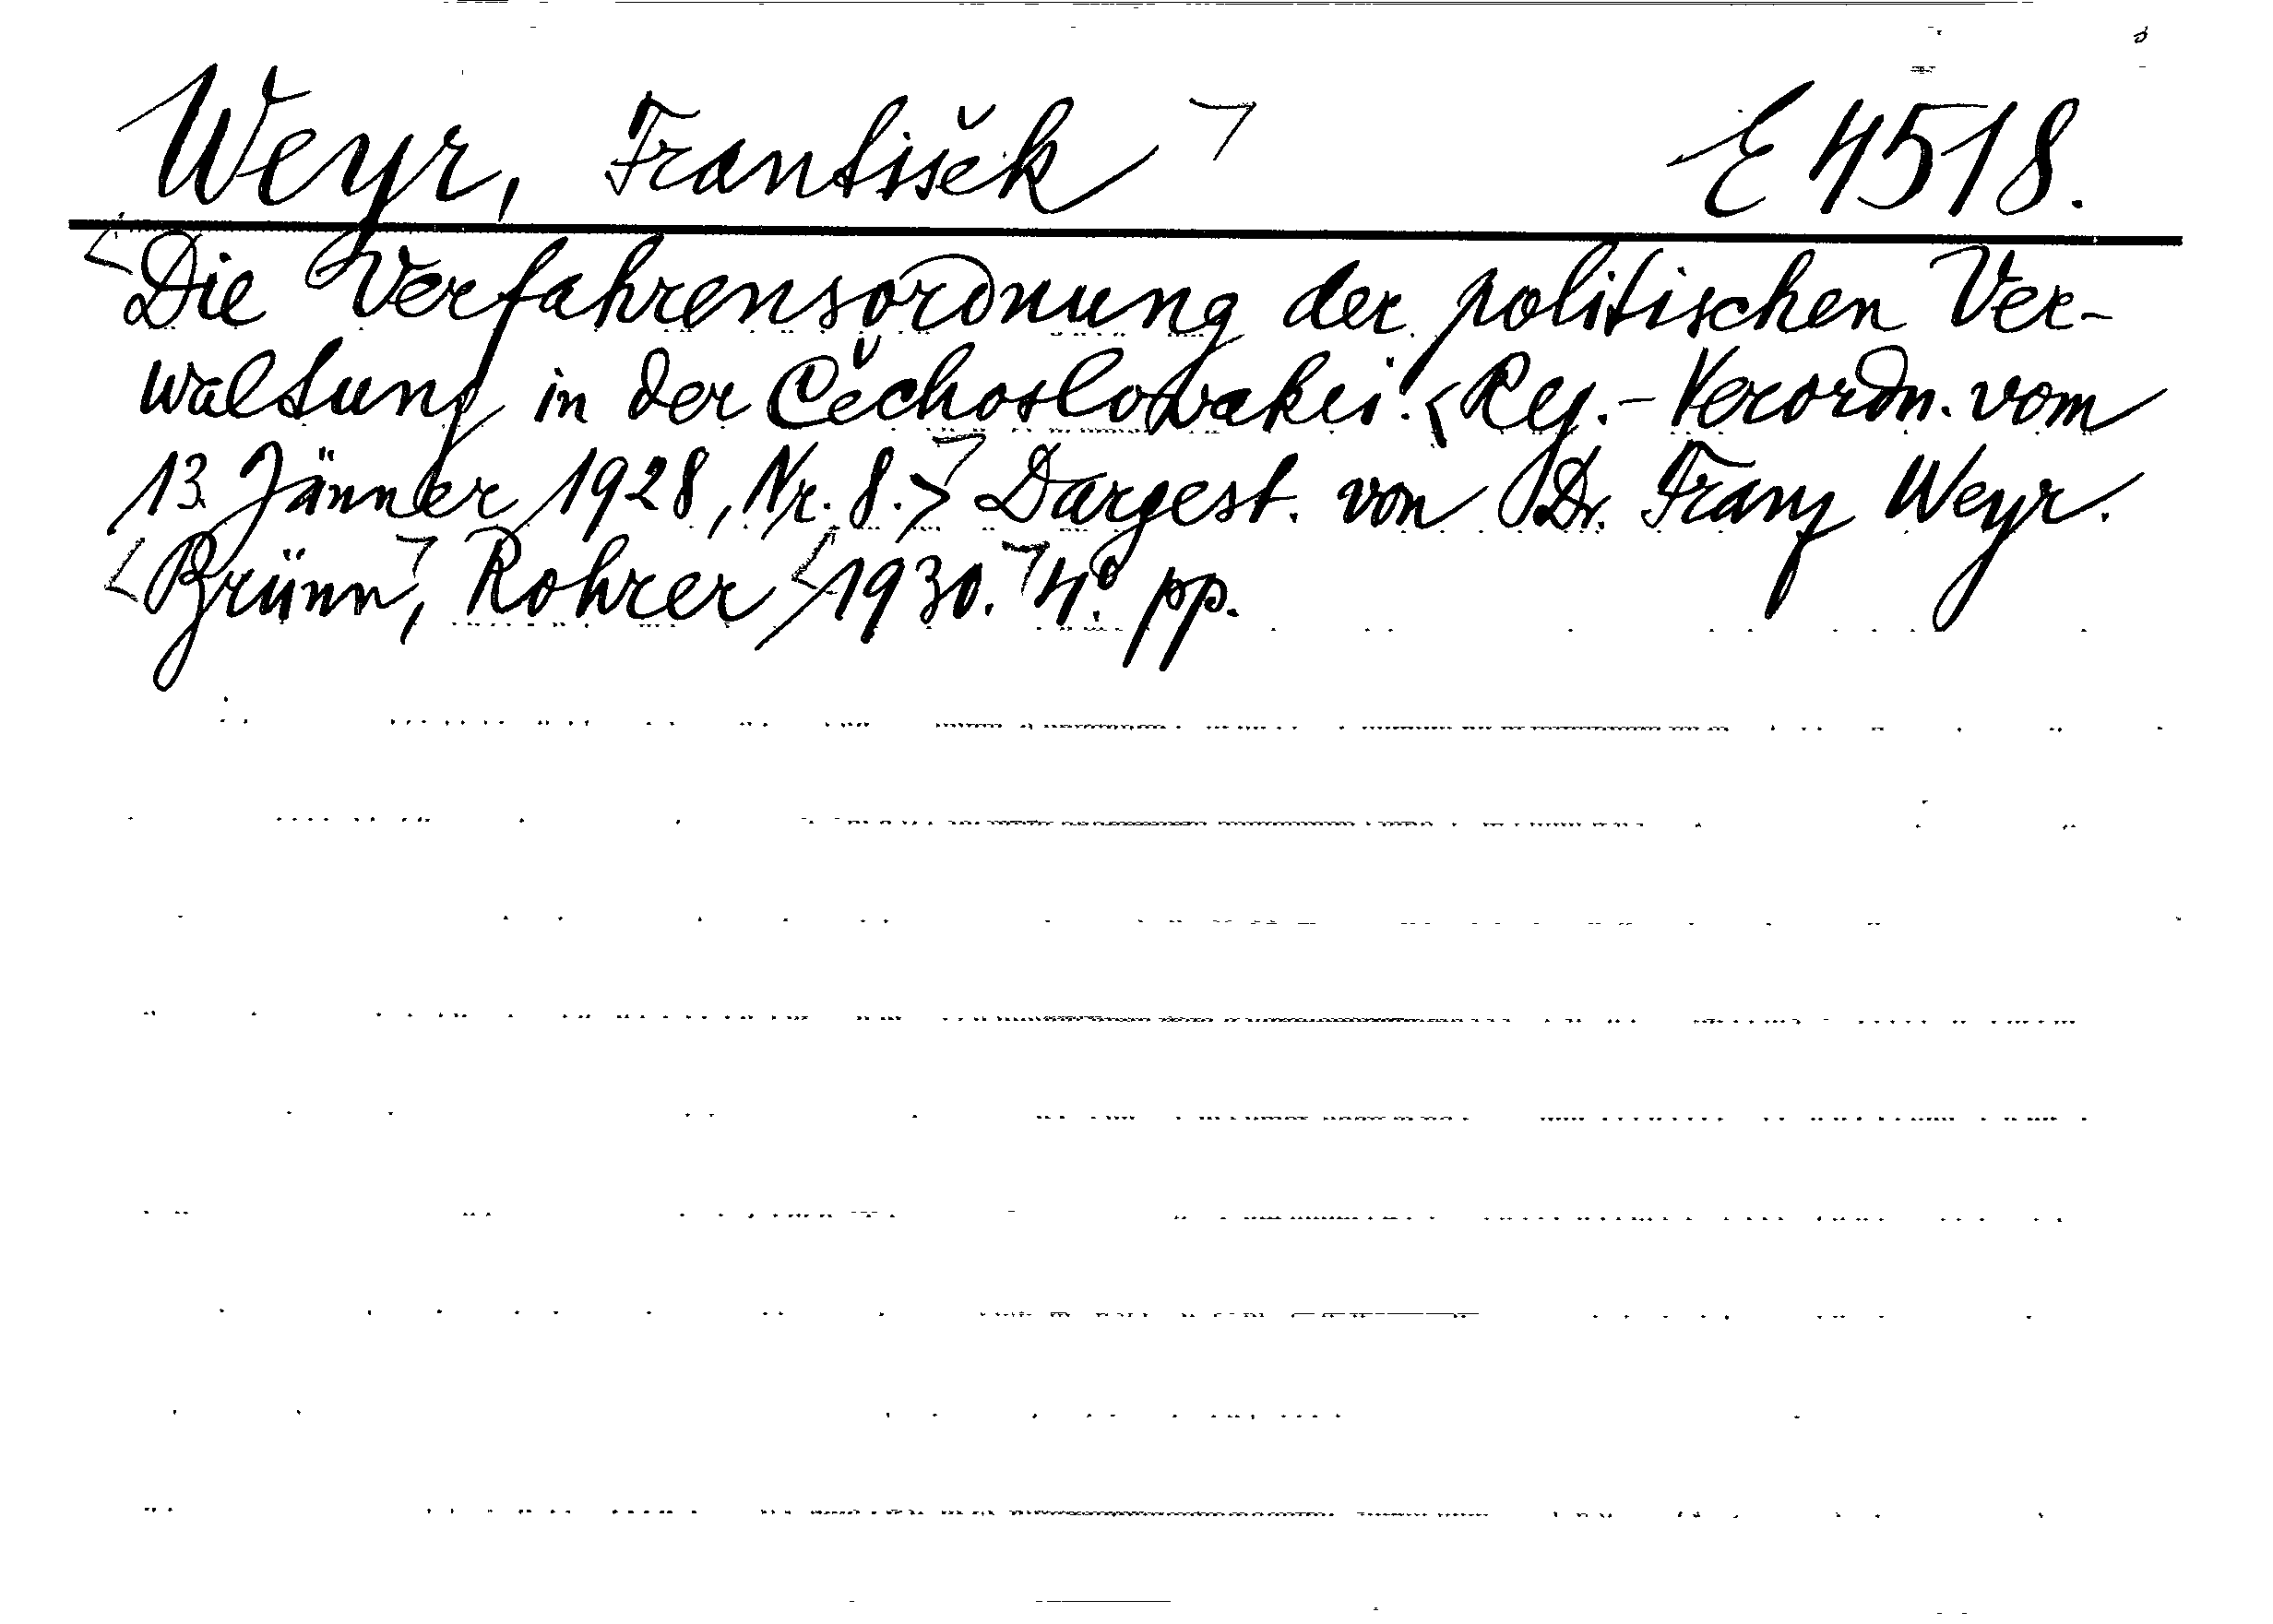 Weyr, František E 4518.
Die Verfahrensordnung der politischen Ver-
waltung in der Čechoslovakei. <Reg.-Verordn. vom
13. Jänner 1928, Nr. 8.> Dargest. von Dr. Franz Weyr.
Brünn, Rohrer 1930. 4°. pp.